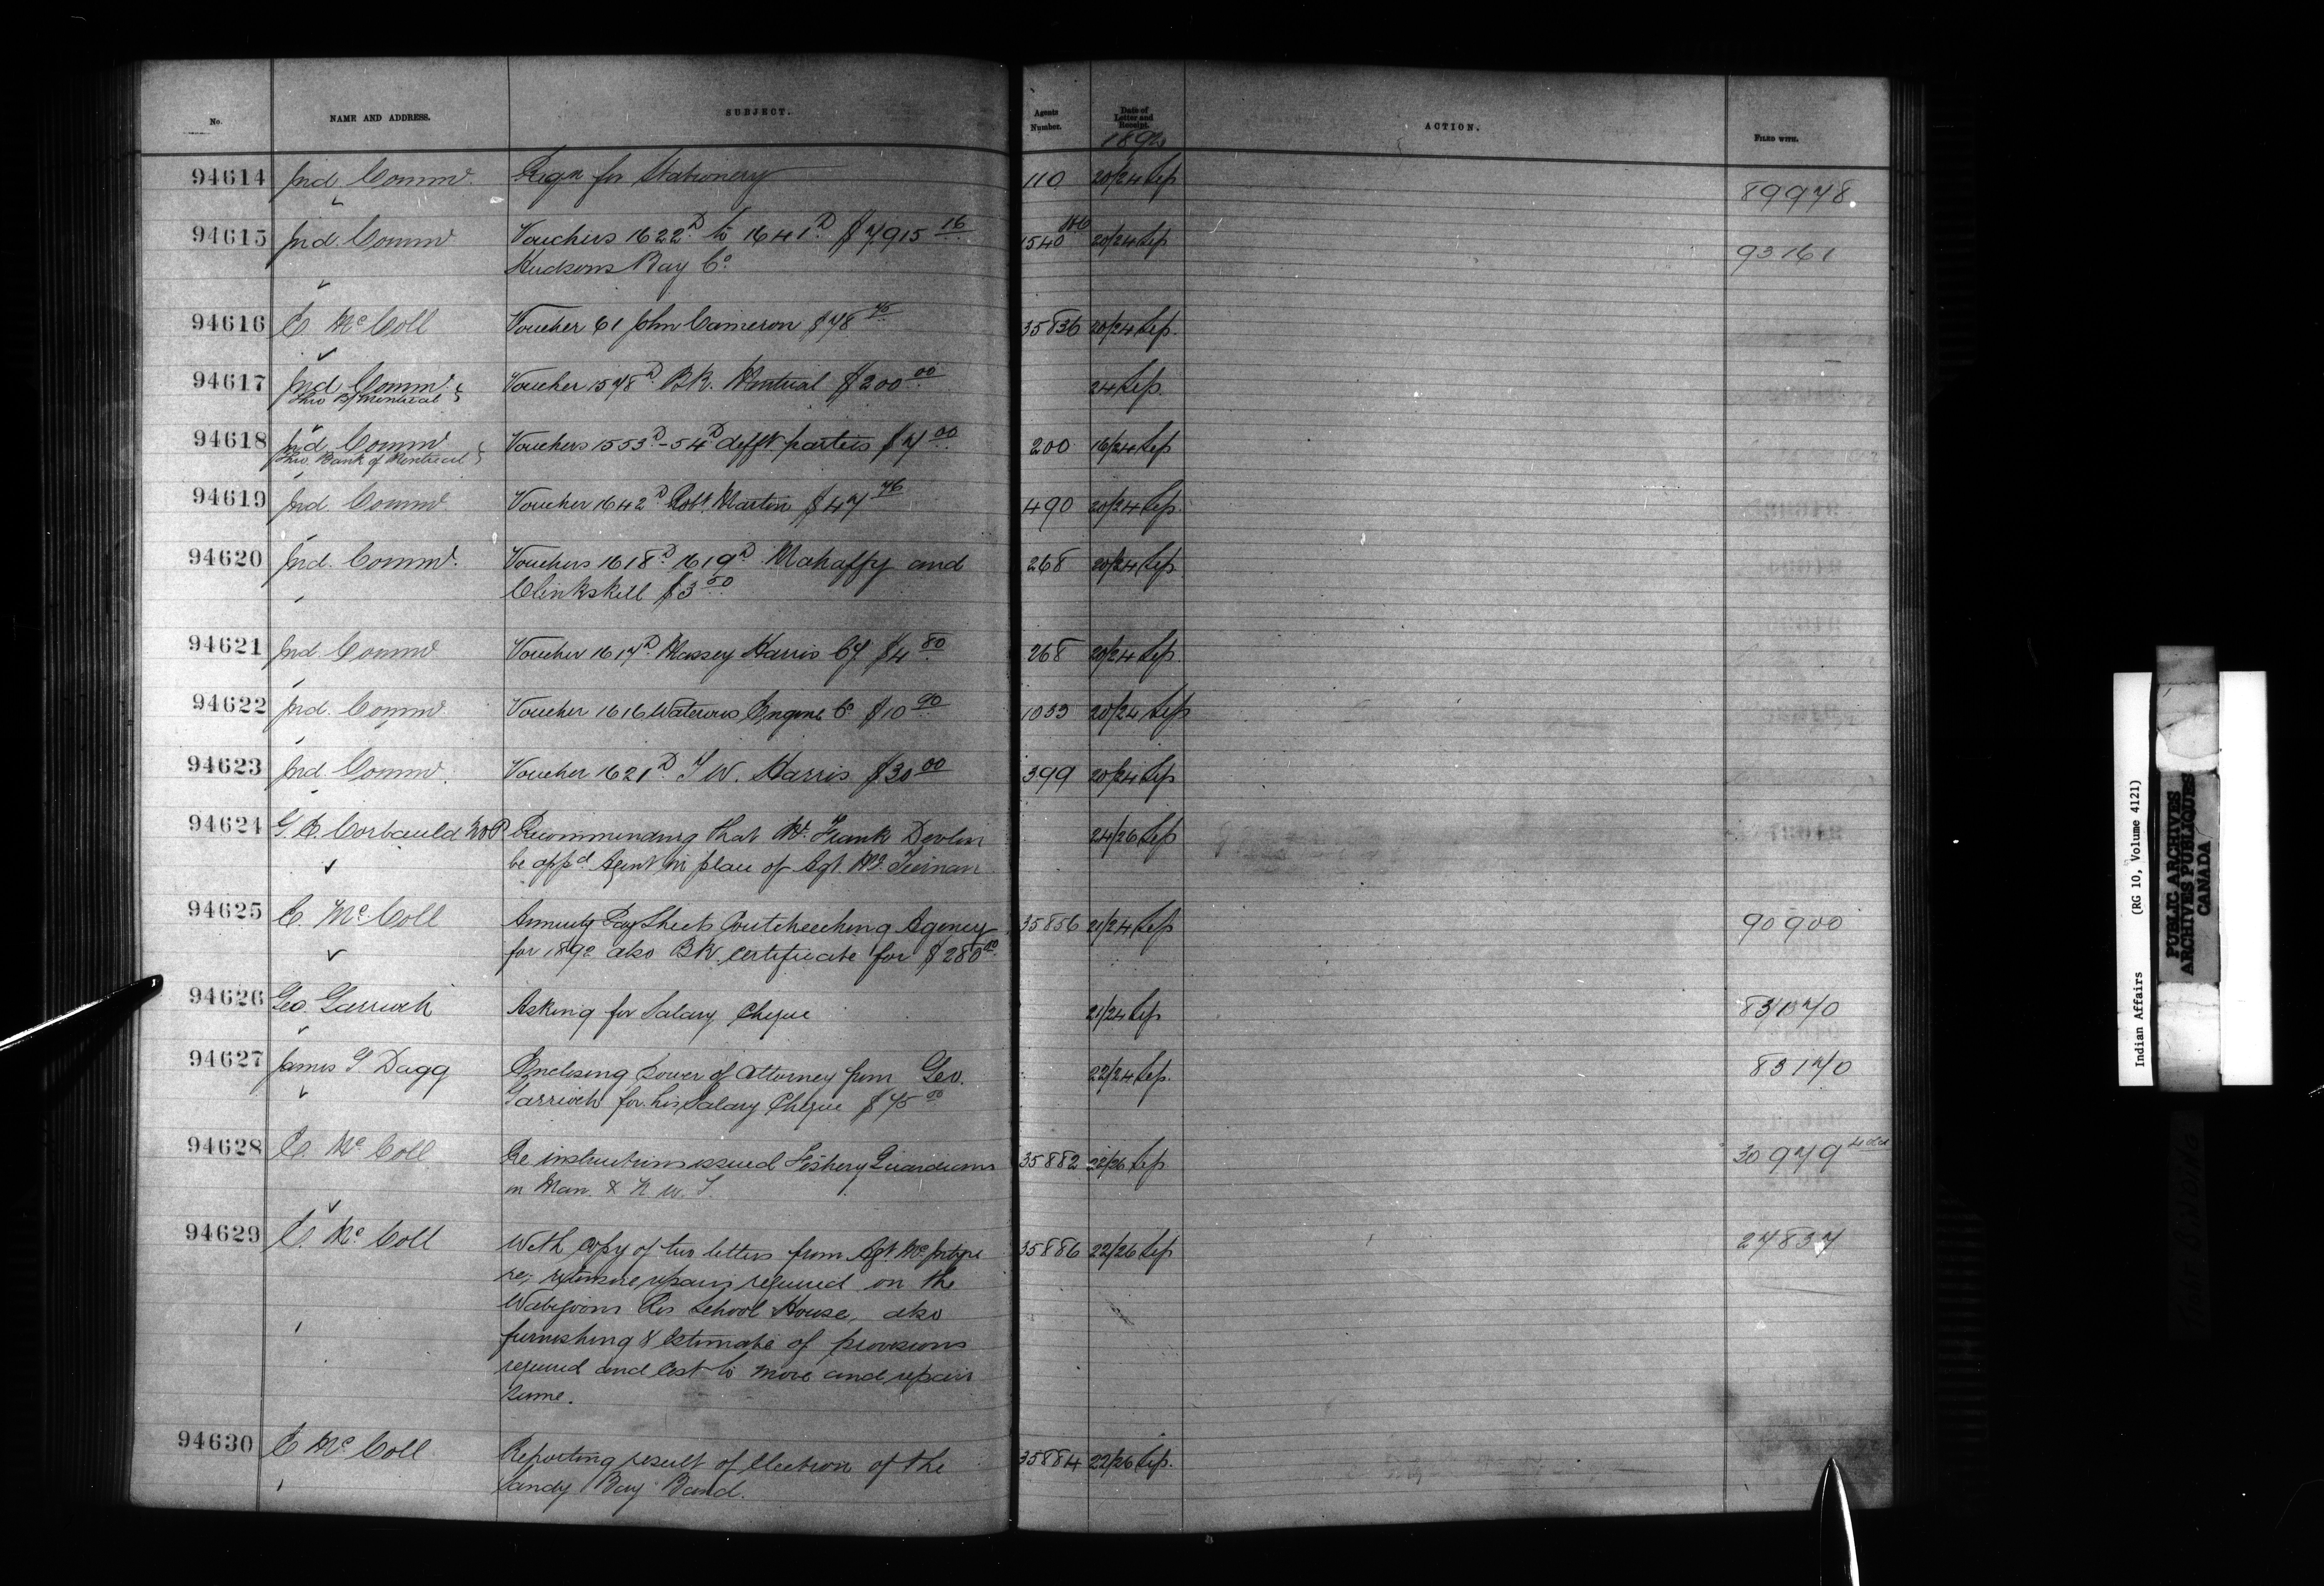 No. NAME AND ADDRESS. SUBJECT. Agents Number. Date of Letter and Receipt. ACTION. FILED WITH.
1892
94614 Ind. Commr. Reqn for Stationery 110 20/24 Sep 89978
94615 Ind. Commr Vouchers 1622D to 1641D $7915 16 1540 20/24 Sep 93161
Hudsons Bay Co.
94616 E. McColl Voucher 61 John Cameron $78 75 35836 20/24 Sep.
94617 Ind. Commr. Voucher 1578D. Bk. Montreal $200 00 24 Sep.
Thro B/Montreal
94618 Ind Commr Vouchers 1553D-54D difft parties $7 00 200 16/24 Sep
Thro. Bank of Montreal
94619 Ind. Commr Voucher 1642D Robt. Martin $47 76 490 20/24 Sep.
94620 Ind. Commr. Vouchers 1618D 1619D Mahaffy and 268 20/24 Sep
Clinkskill $3 50
94621 Ind. Commr Voucher 1617D. Massey Harris Coy $4 80 268 20/24 Sep.
94622 Ind. Commr. Voucher 1616 Waterous Engine Co $10 90 1053 20/24 Sep
94623 Ind. Commr. Voucher 1621D. T W. Harris $30 00 399 20/24 Sep
94624 G. E. Corbauld M P Recommending that Mr. Frank Devlin 24/26 Sep
be appd Agent in place of Agt. McTiernan
94625 E. McColl Annuity Pay Sheets Coutcheeching Agency 35856 21/24 Sep 90900
for 1892 also Bk. certificate for $280 00
94626 Geo. Garrioch Asking for Salary Cheque 21/24 Sep 83170
94627 James T. Dagg Enclosing Power of Attorney from Geo. 22/24 Sep. 83170
Garrioch for his Salary Cheque $75 00
94628 E. McColl Re instructions issued Fishery Guardians 35882 22/26 Sep 30979
in Man. & N. W. T.
94629 E. McColl With copy of two letters from Agt. McIntyre 35886 22/26 Sep 27837
re; extensive repairs required on the
Wabigoons Res School House, also
furnishing estimate of provisions
required and cost to move and repair
same.
94630 E McColl Reporting result of election of the 35884 22/26 Sep.
Sandy Bay Band.
Indian Affairs (RG 10, Volume 4121)
PUBLIC ARCHIVES
ARCHIVES PUBLIQUES
CANADA